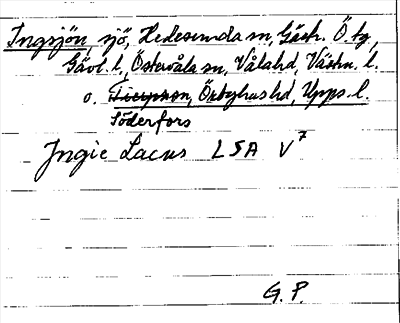 Ingsjön, sjö, Hedesunda sn, Gästr. Ö. tg,
Gävl. l., Östervåla sn, Våla hd, Västm. l.
o. Örbyhus hd, Upps. l.
Söderfors
Jngie Lacus LSA V7
G. P.